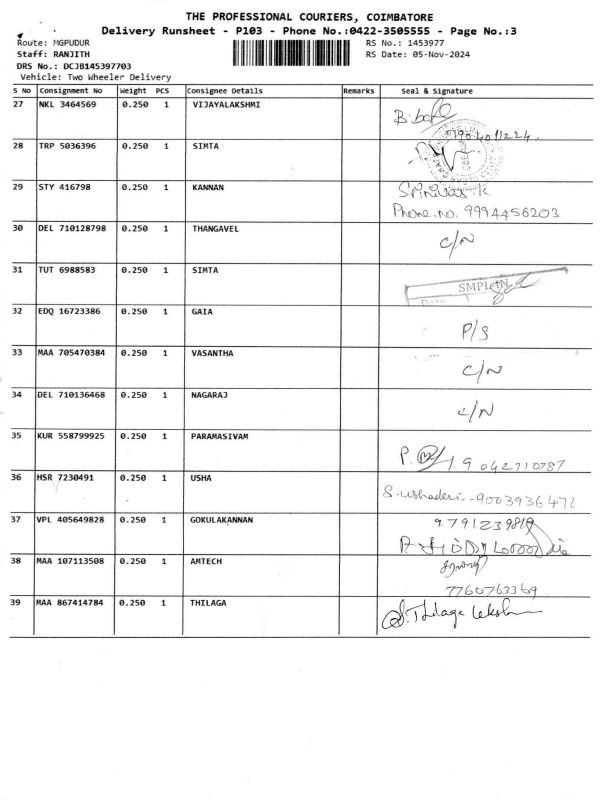 THE PROFESSIONAL COURIERS, COIMBATORE
Delivery Runsheet - P103 - Phone No.:0422-3505555 - Page No.:3
Route: MGPUDUR RS No.: 1453977
Staff: RANJITH RS Date: 05-Nov-2024
DRS No.: DCJB145397703
Vehicle: Two Wheeler Delivery
S No Consignment No Weight PCS Consignee Details Remarks Seal & Signature
27 NKL 3464569 0.250 1 VIJAYALAKSHMI
28 TRP 5036396 0.250 1 SIMTA
29 STY 416798 0.250 1 KANNAN Srinivas.K
Phone.no. 9994456203
30 DEL 710128798 0.250 1 THANGAVEL C/N
31 TUT 6988583 0.250 1 SIMTA SMPL
Date
32 EDQ 16723386 0.250 1 GAIA P/S
33 MAA 705470384 0.250 1 VASANTHA C/N
34 DEL 710136468 0.250 1 NAGARAJ C/N
35 KUR 558799925 0.250 1 PARAMASIVAM P. 9042710787
36 HSR 7230491 0.250 1 USHA S.ushaderi.-9003936471
37 VPL 405649828 0.250 1 GOKULAKANNAN 9791239819
38 MAA 107113508 0.250 1 AMTECH
7760763369
39 MAA 867414784 0.250 1 THILAGA S.Thilaga